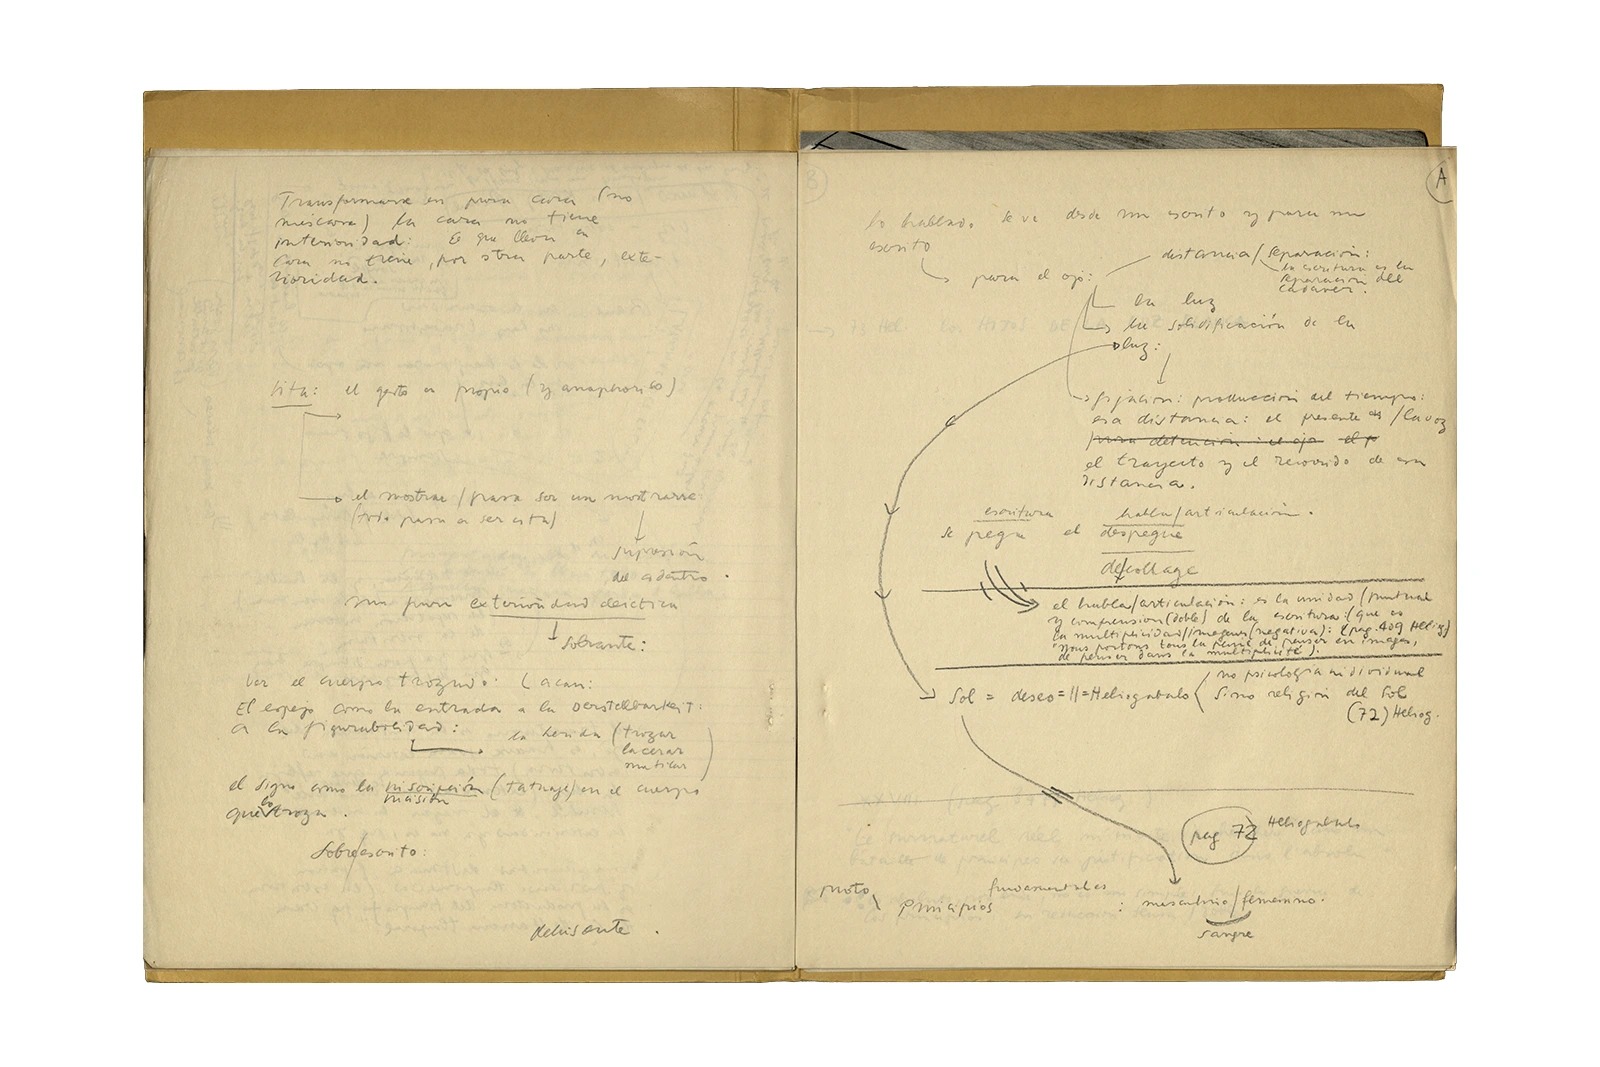 Transformarse en pura cara (no
máscara) la cara no tiene
interioridad: Lo que lleva la
cara no tiene, por otra parte, exte-
rioridad.
cita: el gesto es propio (y anaphorico)
el mostrar/pasa ser un mostrarse:
(todo pasa a ser cita)
supresión
del adentro.
una pura exterioridad deictica
sobrante:
Ver el cuerpo trozado: Lacan:
El espejo como la entrada a la Derstellbarkeit:
a la figurabilidad:
la herida (trozar
lacerar
mutilar)
el signo como la inscripción (tatuaje) en el cuerpo
incisión
que lo troza.
Sobre/escrito:
dehiscente.
A
lo hablado se va desde un escrito y para un
escrito
para el ojo:
distancia/separación:
la escritura es la
separación del
cadáver.
la luz
la solidificación de la
luz:
fijación: producción del tiempo:
esa distancia: el presente es /la voz
para detención: el ojo el p
el trayecto y el recorrido de esa
distancia.
escritura habla/articulación.
se pega el despegue
de/collage
el habla/articulación: es la unidad (puntual
y comprension (doble) de la escritura: (que es
la multiplicidad//imagenes (negativa): (pag. 409 Heliog)
"nous portons tous la peine de penser en images,
de penser dans la multiplicité").
no psicología individual
Sol = deseo = // = Heliogabalo sino religión del Sol
(72) Heliog.
pag 72 Heliogabalo
proto fundamentales
Principios : masculino/femenino.
sangre